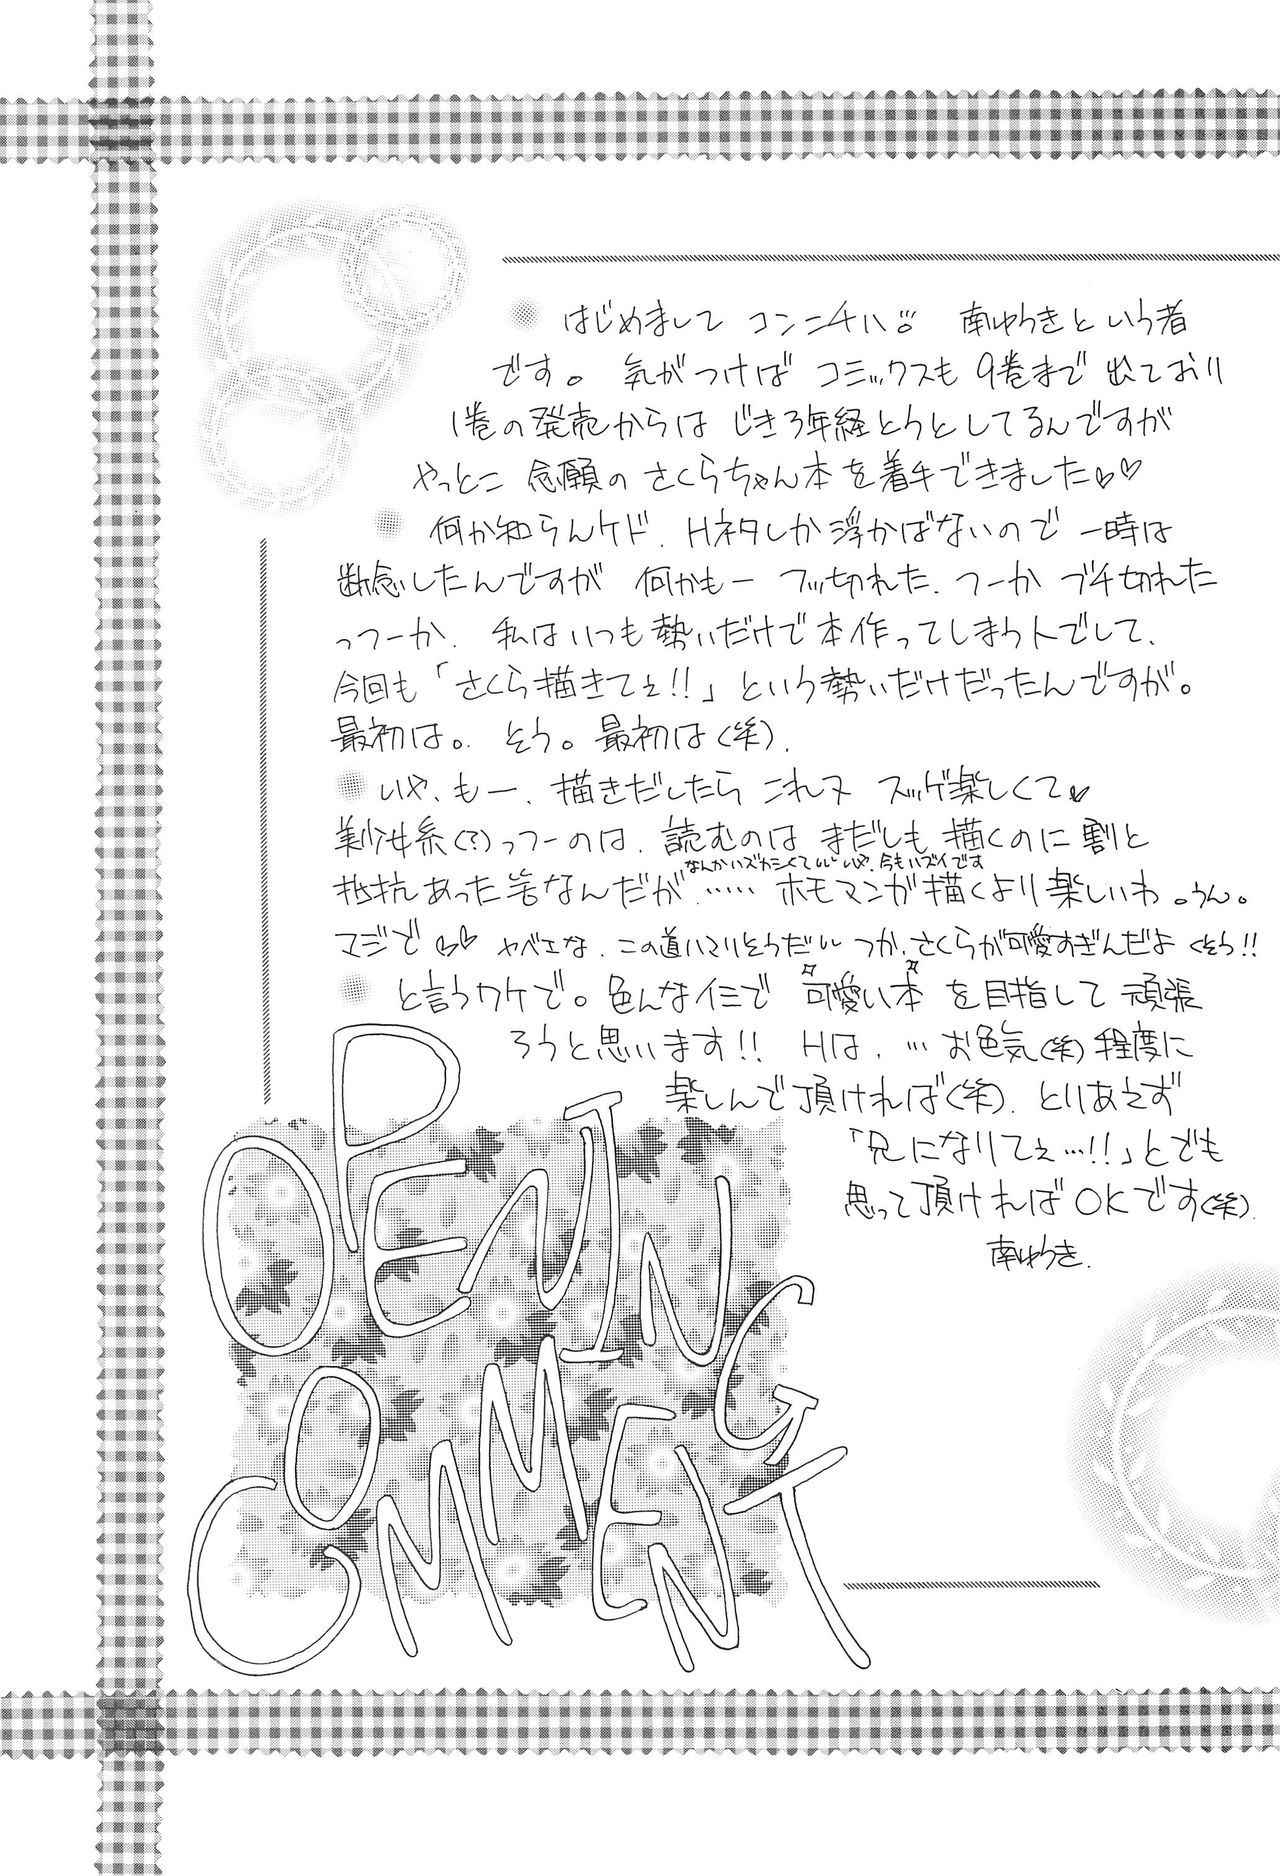 はじめまして コンニチハ。 南ゆうきという者
です。 気がつけば コミックスも 9巻まで 出ており
1巻の発売からは じき3年経とうとしてるんですが
やっとこ 念願の さくらちゃん本を着手できました♡♡
何か知らんケド、Hネタしか浮かばないので 一時は
断念したんですが 何かもー フッ切れた、つーか ブチ切れた
っつーか、 私はいつも勢いだけで本作ってしまう人でして、
今回も「さくら描きてぇ!!」という勢いだけだったんですが。
最初は。 そう。最初は(笑)、
いや、もー、描きだしたら これまた スッゲ楽しくて♡
美少女系(?)っつーのは、読むのは まだしも 描くのに割と
なんかハズカシくて いや、今もハズイです
抵抗あった筈なんだが…… ホモマンガ描くより楽しいわ。うん。
マジで♡♡ ヤベエな、この道ハマりそうだ つか、さくらが可愛すぎんだよ くそう!!
と言うワケで。色んなイミで 可愛い本 を目指して 頑張
ろうと思います!! Hは、…お色気(笑)程度に
楽しんで頂ければ(笑)、とりあえず
「兄になりてぇ…!!」とでも
思って頂ければOKです(笑)、
南ゆうき、
OPENING
COMMENT